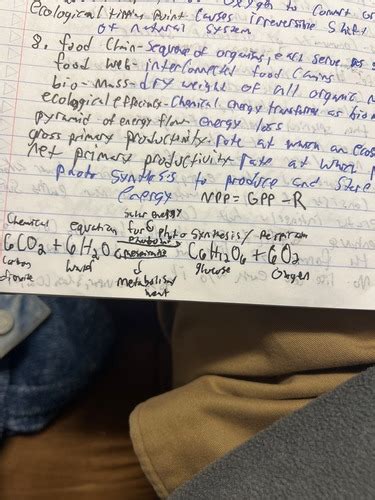 oxygen to convert
ecological tipping Point causes irreversible shift
of natural system
8. food Chain- sequence of organisms, each serve as
food web- interconnected food Chains
bio-mass- dry weight of all organic
ecological efficiency- Chemical energy transforms as
pyramid of energy flow- energy loss
gross primary productivity- rate at when an
net primary productivity- rate at when
photosynthesis to produce and store
energy NPP = GPP - R
solar energy
Chemical equation for photosynthesis/
6CO2 + 6H2O C6H12O6 + 6O2
carbon dioxide glucose oxygen
metabolism
heat